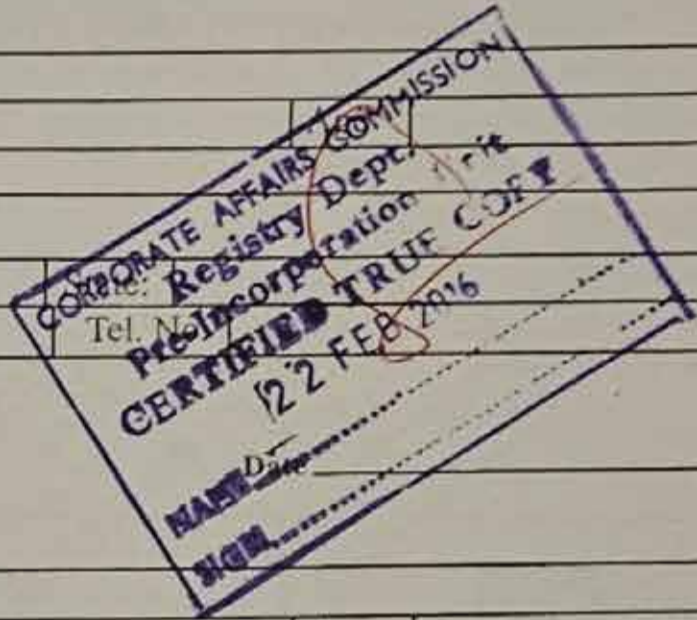 CORPORATE AFFAIRS COMMISSION
Registry Dept.
Pre-Incorporation
CERTIFIED TRUE COPY
22 FEB 2016
NAME
SIGN
Tel. No
Date